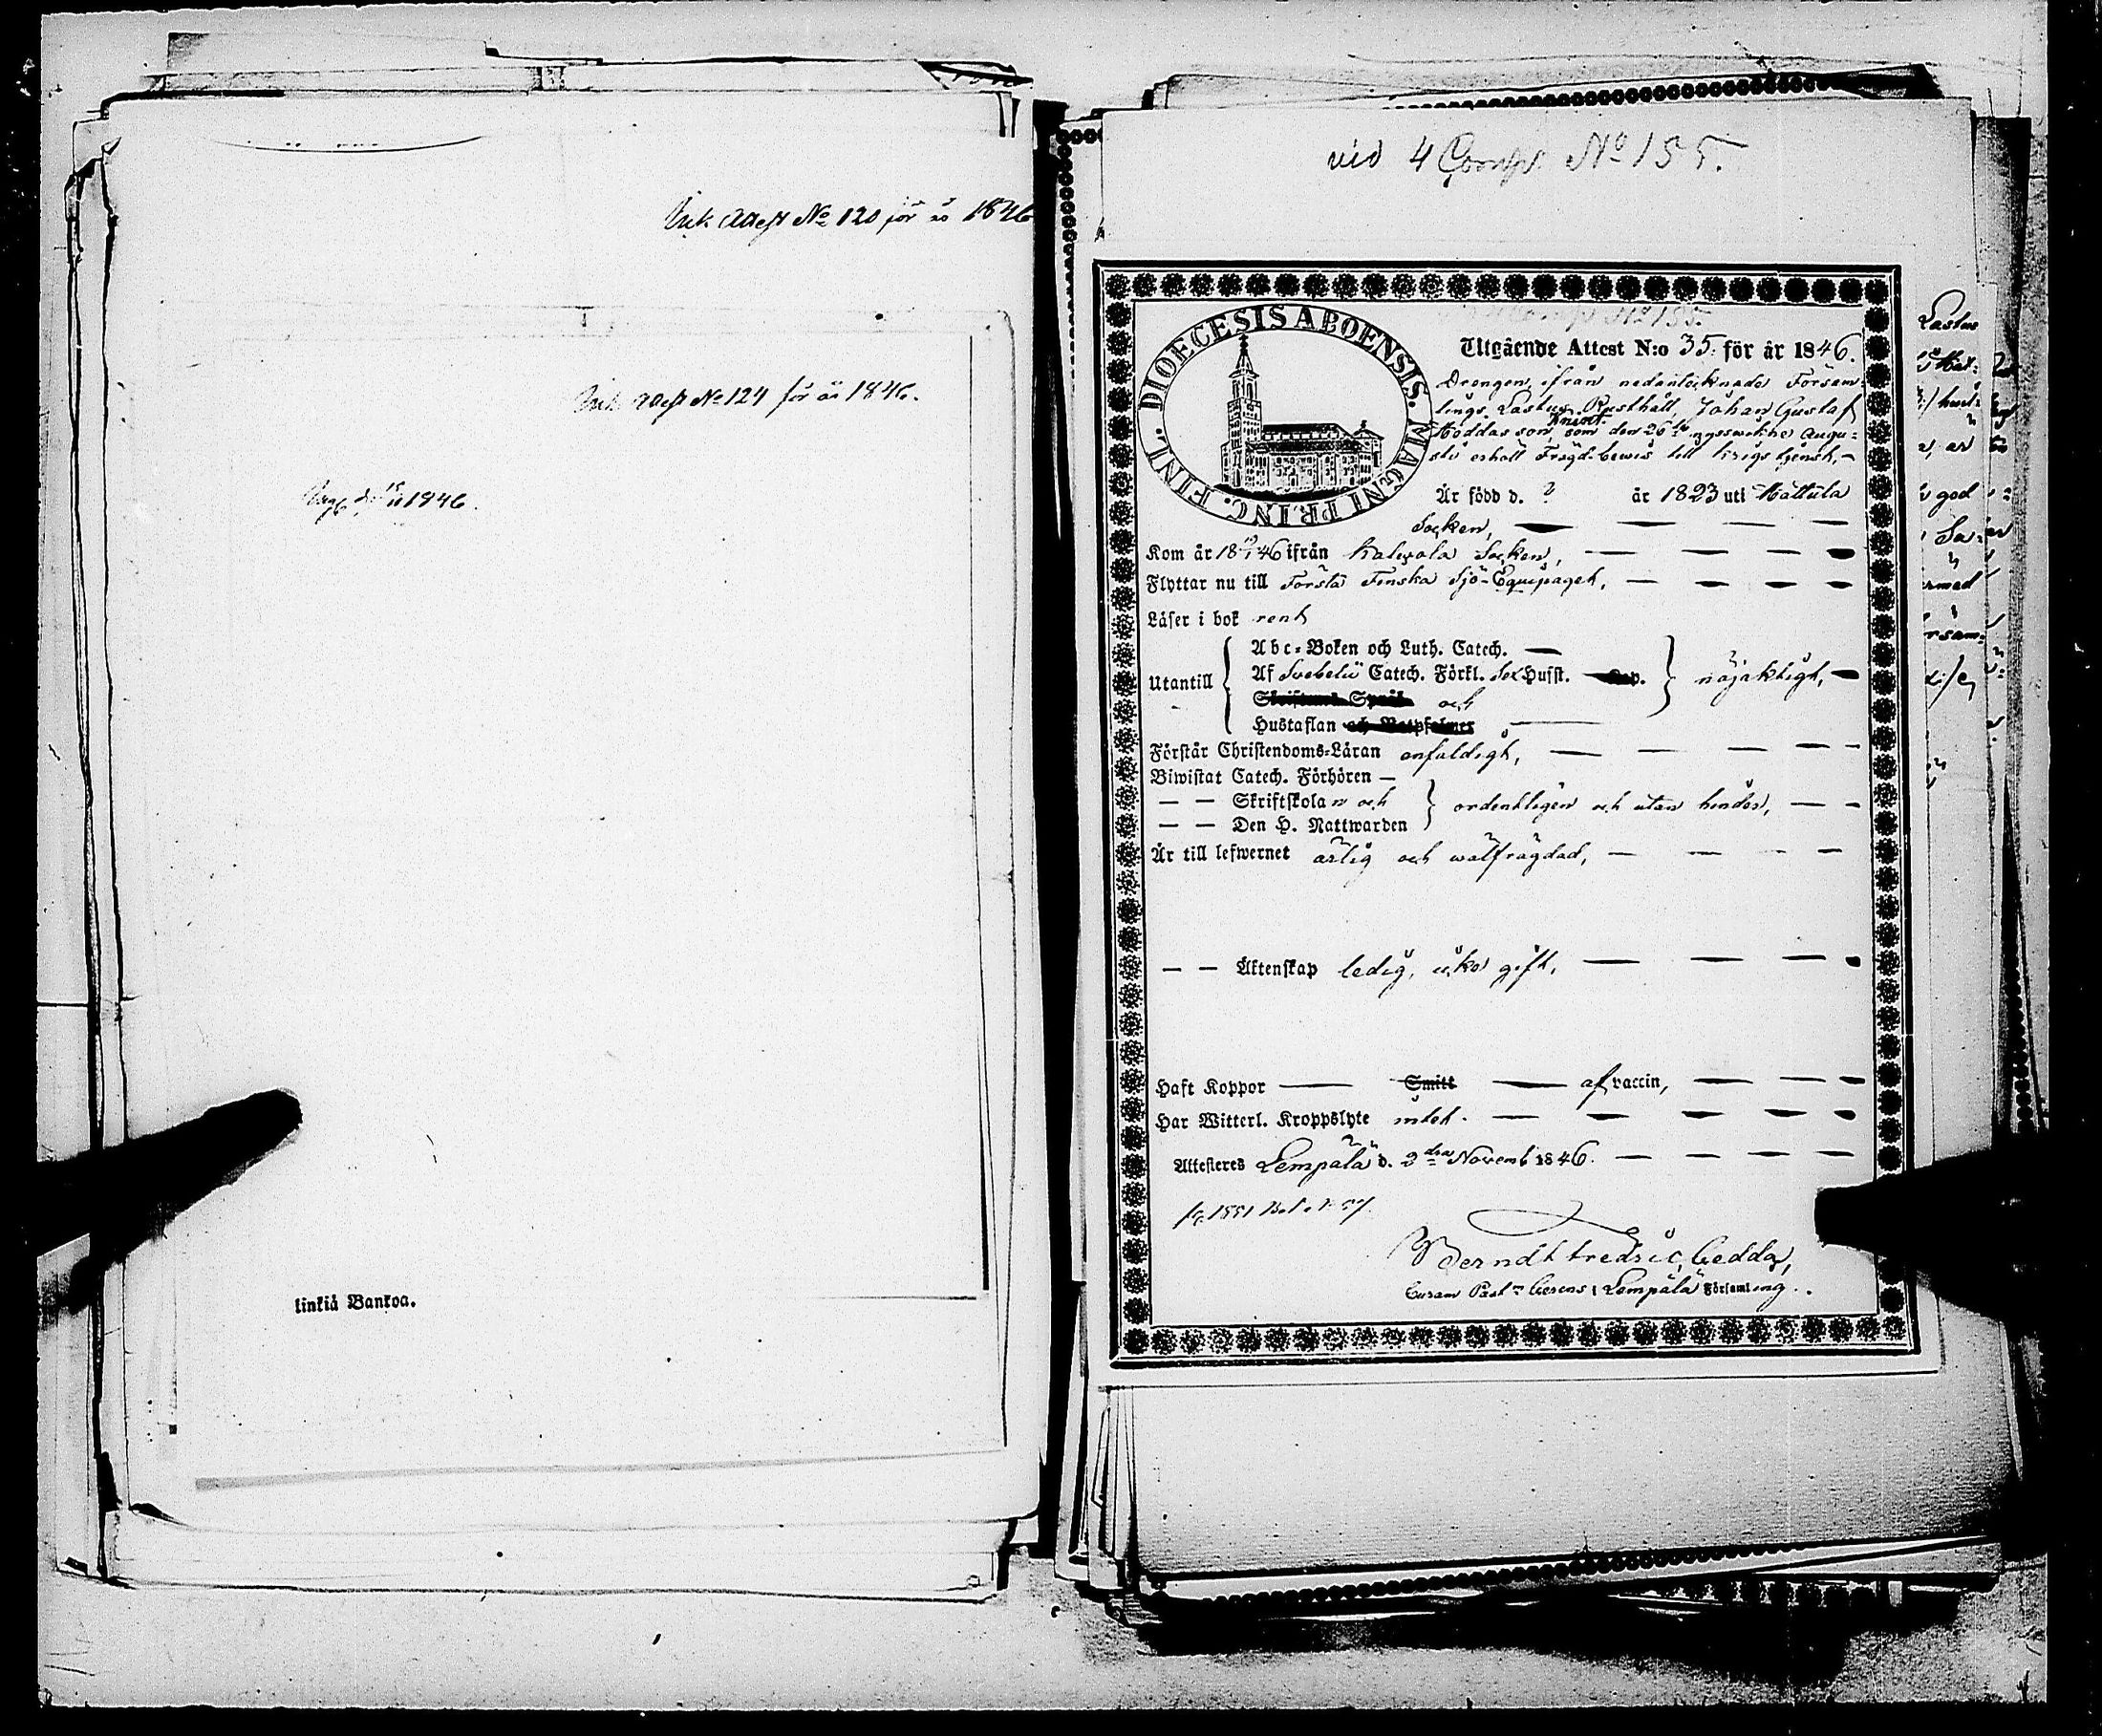 Ink. Attest No 120 för år 1846
Ink. Attest No 124 för år 1846.
1846.
linkiä Bankoa.
vid 4 Comp. No 155.
DIOECESIS ABOENSIS. MAGNI PRINC. FINL.
Utgående Attest N:o 35. för år 1846.
Drengen, ifrån nedantecknade Försam-
lings Lastus Rusthåll, Johan Gustaf
som den 26te nysswekne Augu-
sti erhöll Frägd-bewis till krigs tjenst, –
Är född d. ? år 1823 uti Hattula
Socken, —
Kom år 18 46 ifrån Kalwola Socken, —
Flyttar nu till Första Finska Sjö-Equipaget, —
Läser i bok rent
Utantill
Abc-Boken och Luth. Catech. —
Af Svebelii Catech. Förkl. Sex Hufst. — Cap. nöjaktigt, —
Skriftenes Språk och
Hustaflan och Botpsalmer —
Förstår Christendoms-Läran enfaldigt, —
Biwistat Catech. Förhören —
— — Skriftskolan och ordentligen och utan hinder, —
— — Den H. Nattwarden
Är till lefwernet ärlig och wälfrägdad, —
— — Äktenskap ledig, icke gift, —
Haft Koppor — Smitt — af vaccin, —
Har Witterl. Kroppslyte intet. —
Attesteras Lempälä d. 3dra Novemb. 1846. —
Berndt Fredric Gedda,
Curam Past. Gerens i Lempälä Församling.
Lastus
god
rsam-